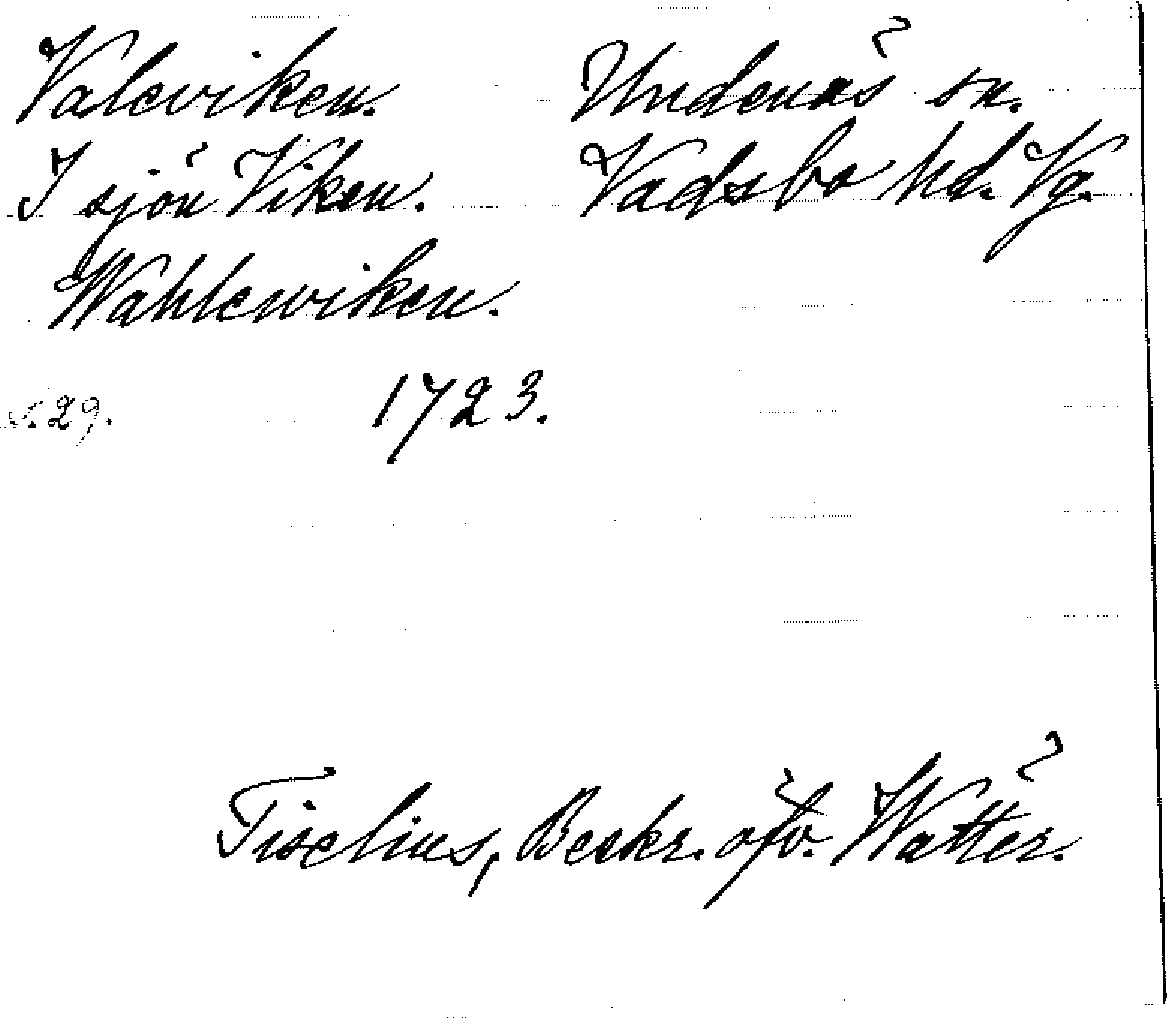 Valeviken. Undenäs sn.
I sjön Viken. Vadsbo hd. Vg.
Wahlewiken.
s. 29. 1723.
Tiselius, Beskr. öfv. Wätter.